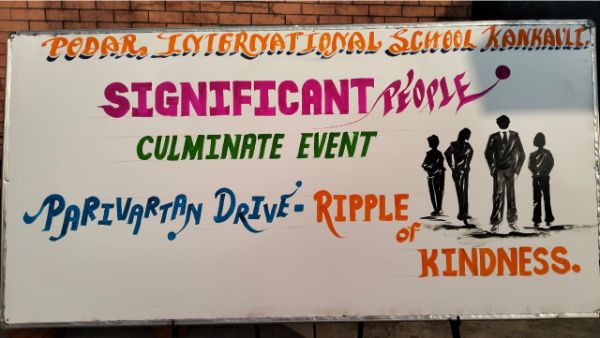 PODAR, INTERNATIONAL SCHOOL KANKAVLI.
SIGNIFICANT PEOPLE
CULMINATE EVENT
PARIVARTAN DRIVE- RIPPLE
of
KINDNESS.